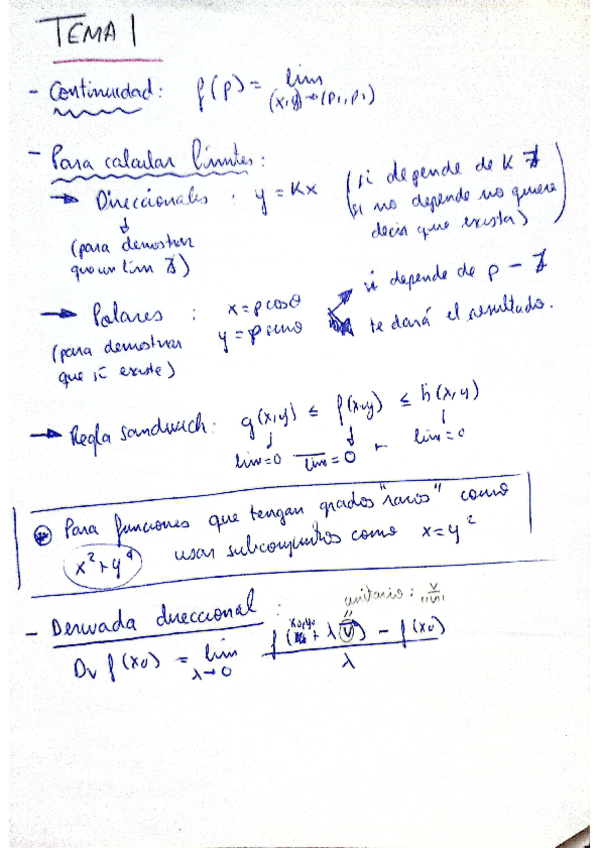 TEMA 1
- Continuidad: f(p) = lim
(x,y)→(p₁,p₂)
- Para calcular límites:
→ Direccionales : y = Kx (si depende de K ∄
si no depende no quiere
decir que exista)
↓
(para demostrar
que un lim ∄)
→ Polares : x = ρ cosθ si depende de ρ - ∄
y = ρ senθ te dará el resultado.
(para demostrar
que sí existe)
→ Regla sandwich: g(x,y) ≤ f(x,y) ≤ h(x,y)
lim=0 lim=0 lim=0
Para funciones que tengan grados "raros" como
x²+y⁴ usar subconjuntos como x=y²
- Derivada direccional : unitario: v/||v||
Dv f(x₀) = lim λ→0 (f(x₀,y₀ + λ v) - f(x₀))/λ